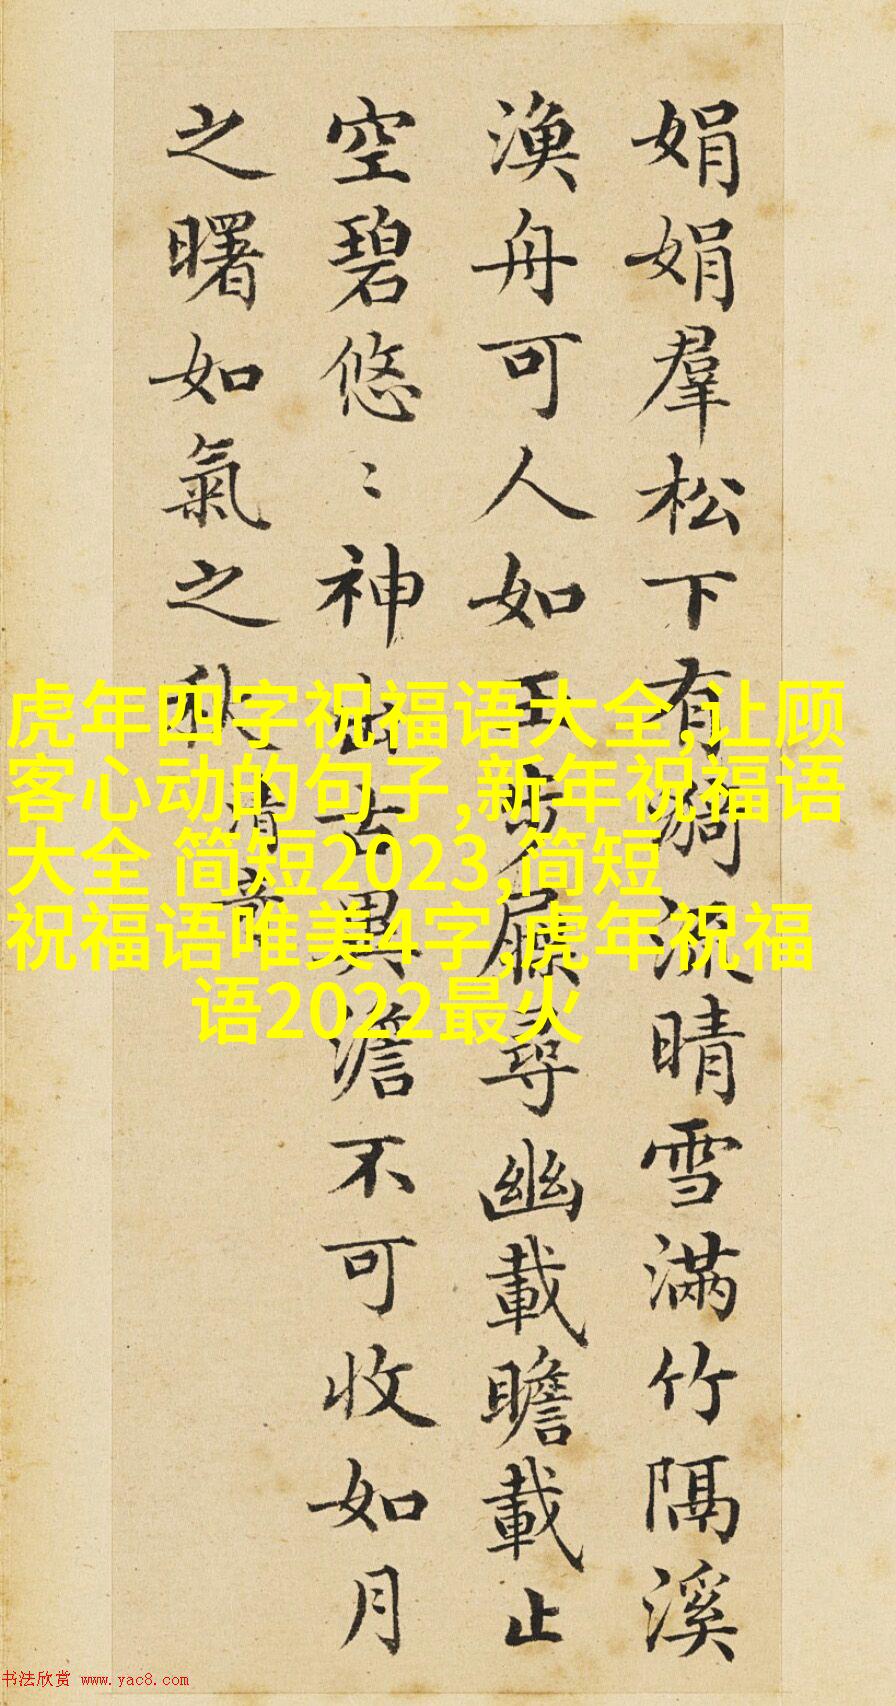 娟娟羣松下有漪流晴雪滿竹隔溪
漁舟可人如玉步屧尋幽載瞻載止
空碧悠〻神出古異澹不可收如月
之曙如氣之秋
清奇
虎年四字祝福语大全,让顾
客心动的句子,新年祝福语
大全 简短2023,简短
祝福语唯美4字,虎年祝福
语2022最火
书法欣赏 www.yac8.com